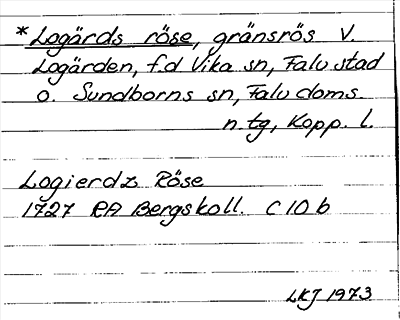 *Logärds röse, gränsrös V.
Logärden, f.d Vika sn, Falu stad
o. Sundborns sn, Falu doms.
n.tg, Kopp. l.
Logierdz Röse
1727 RA Bergskoll. C 10 b
LKJ 1973